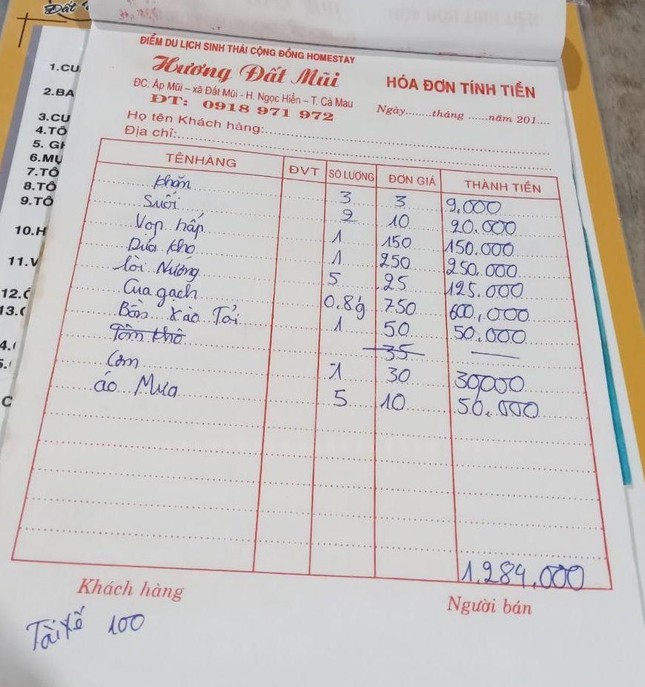 Đất
1.CU
2.BA
3.CU
4.TÔ
5. GI
6.MỤ
7.TÔ
8.TÔ
9.TÔ
10.H
11.V
ĐIỂM DU LỊCH SINH THÁI CỘNG ĐỒNG HOMESTAY
Hương Đất Mũi
ĐC: Ấp Mũi – xã Đất Mũi - H. Ngọc Hiển – T. Cà Mau
ĐT: 0918 971 972
HÓA ĐƠN TÍNH TIỀN
Ngày........tháng ......năm 201....
Họ tên Khách hàng:
Địa chỉ:
TÊN HÀNG ĐVT SỐ LƯỢNG ĐƠN GIÁ THÀNH TIỀN
Khăn 3 3 9,000
Suối 2 10 20.000
Vọp hấp 1 150 150.000
Dứa kho 1 250 250,000
lòi Nướng 5 25 125.000
Cua gạch 0.8g 750 600,000
Bồn xào Tỏi 1 50 50.000
Tôm khô 35
Cơm 1 30 30,000
áo Mưa 5 10 50.000
1.284.000
Khách hàng Người bán
Tài xế 100